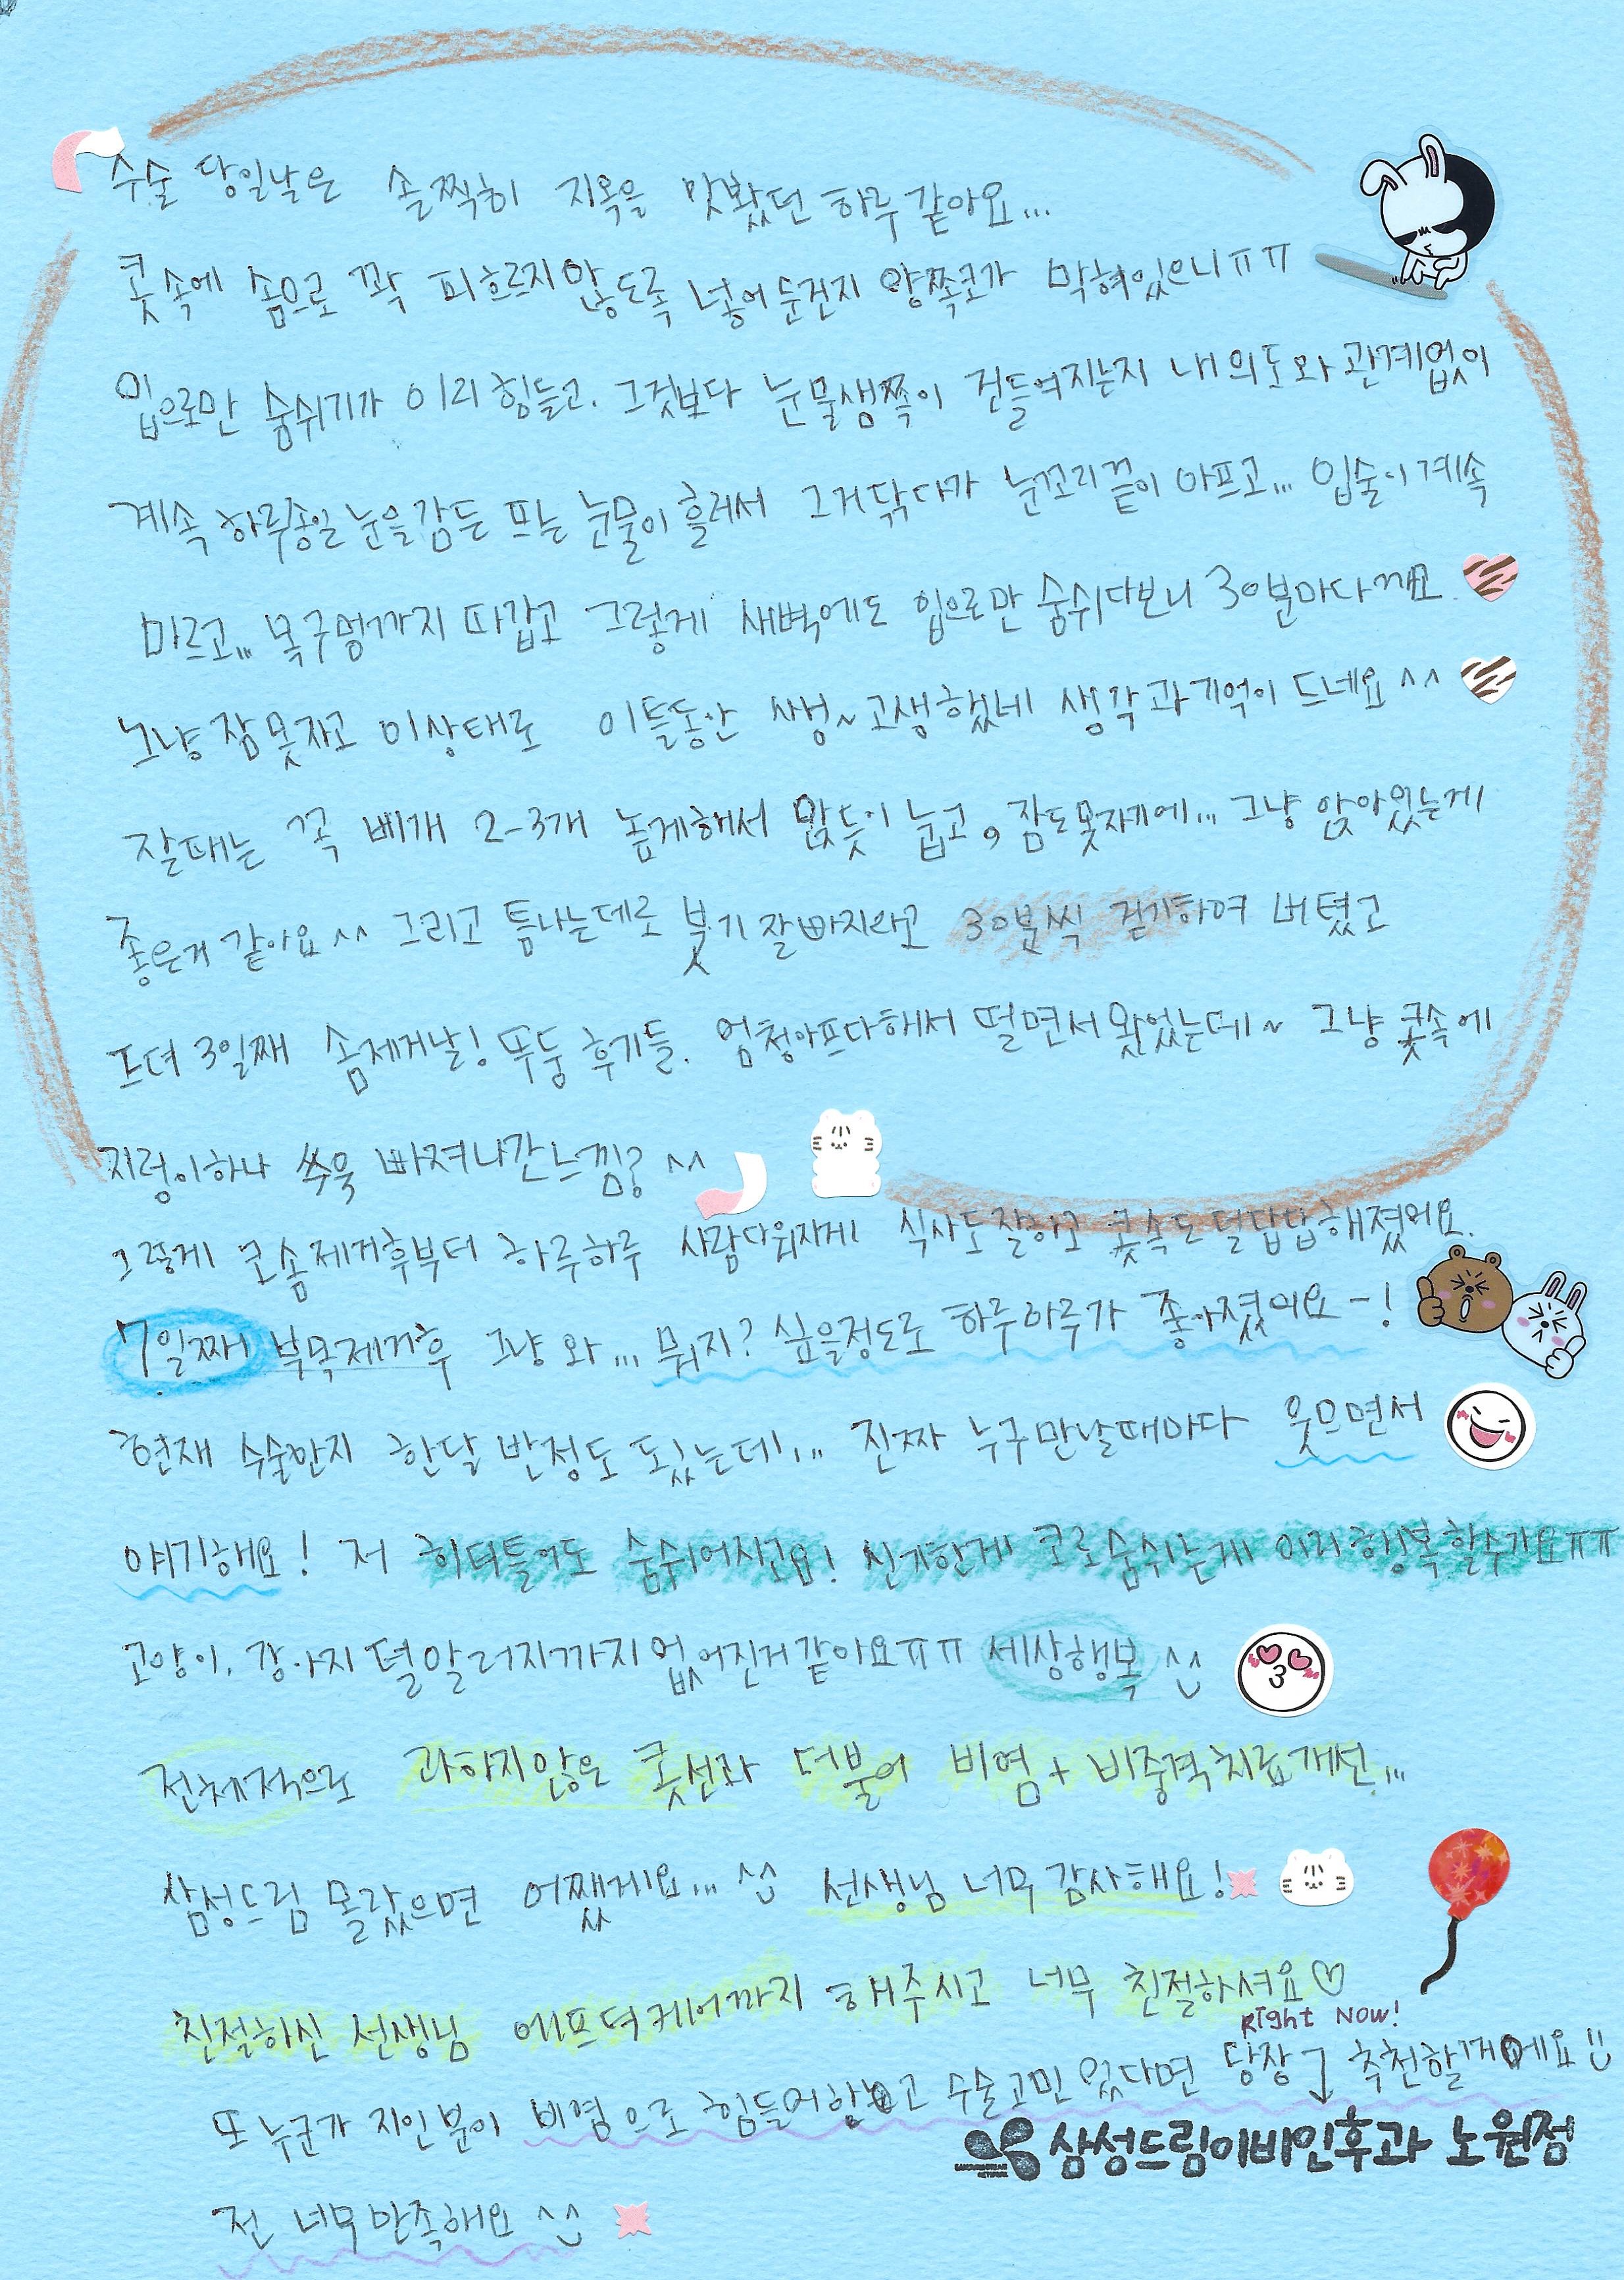 수술 당일날은 솔찍히 지옥을 맛봤던 하루 같아요...
콧속에 솜으로 꽉 피흐르지않도록 넣어둔건지 양쪽코가 막혀있으니ㅠㅠ
입으로만 숨쉬기가 이리 힘들고. 그것보다 눈물샘쪽이 건들여지는지 내 의도와 관계없이
계속 하루종일 눈을감든 뜨는 눈물이 흘러서 그거닦다가 눈꼬리끝이 아프고... 입술이 계속
마르고... 목구멍까지 따갑고 그렇게 새벽에도 입으로만 숨쉬다보니 30분마다깨고
그냥 잠못자고 이상태로 이틀동안 쌩~고생했네 생각과 기억이 드네요^^
잘때는 꼭 베개 2-3개 높게해서 앉듯이 눕고, 잠도못자기에... 그냥 앉아있는게
좋은거 같아요^^ 그리고 틈나는데로 붓기 잘빠지라고 30분씩 걷기하여 버텼고
드뎌 3일째 솜제거날! 뚜둥 후기들. 엄청아프다해서 떨면서 왔었는데~ 그냥 콧속에
지렁이하나 쑤욱 빠져나간느낌? ^^
그렇게 코솜제거후부터 하루하루 사람다워지게 식사도잘하고 콧속도 덜답답해졌어요.
7일째 부목제거후 그냥 와... 뭐지? 싶을정도로 하루하루가 좋아졌어요-!
현재 수술한지 한달 반정도 됬는데... 진짜 누구만날때마다 웃으면서
얘기해요! 저 히터틀어도 숨쉬어지고요! 신기한게 코로숨쉬는게 이리행복할수가요ㅠㅠ
고양이. 강아지 털알러지까지없어진거같아요ㅠㅠ 세상행복 ^^
전체적으로 과하지않은 콧선과 더불어 비염+비중격치료개선...
삼성드림 몰랐으면 어쨌게요... ^^ 선생님 너무 감사해요!
친절하신 선생님 에프터케어까지 해주시고 너무 친절하셔요♡
Right Now!
또 누군가 지인분이 비염으로 힘들어하고 수술고민 있다면 당장 추천할게예요
삼성드림이비인후과 노원점
전 너무만족해요 ^^